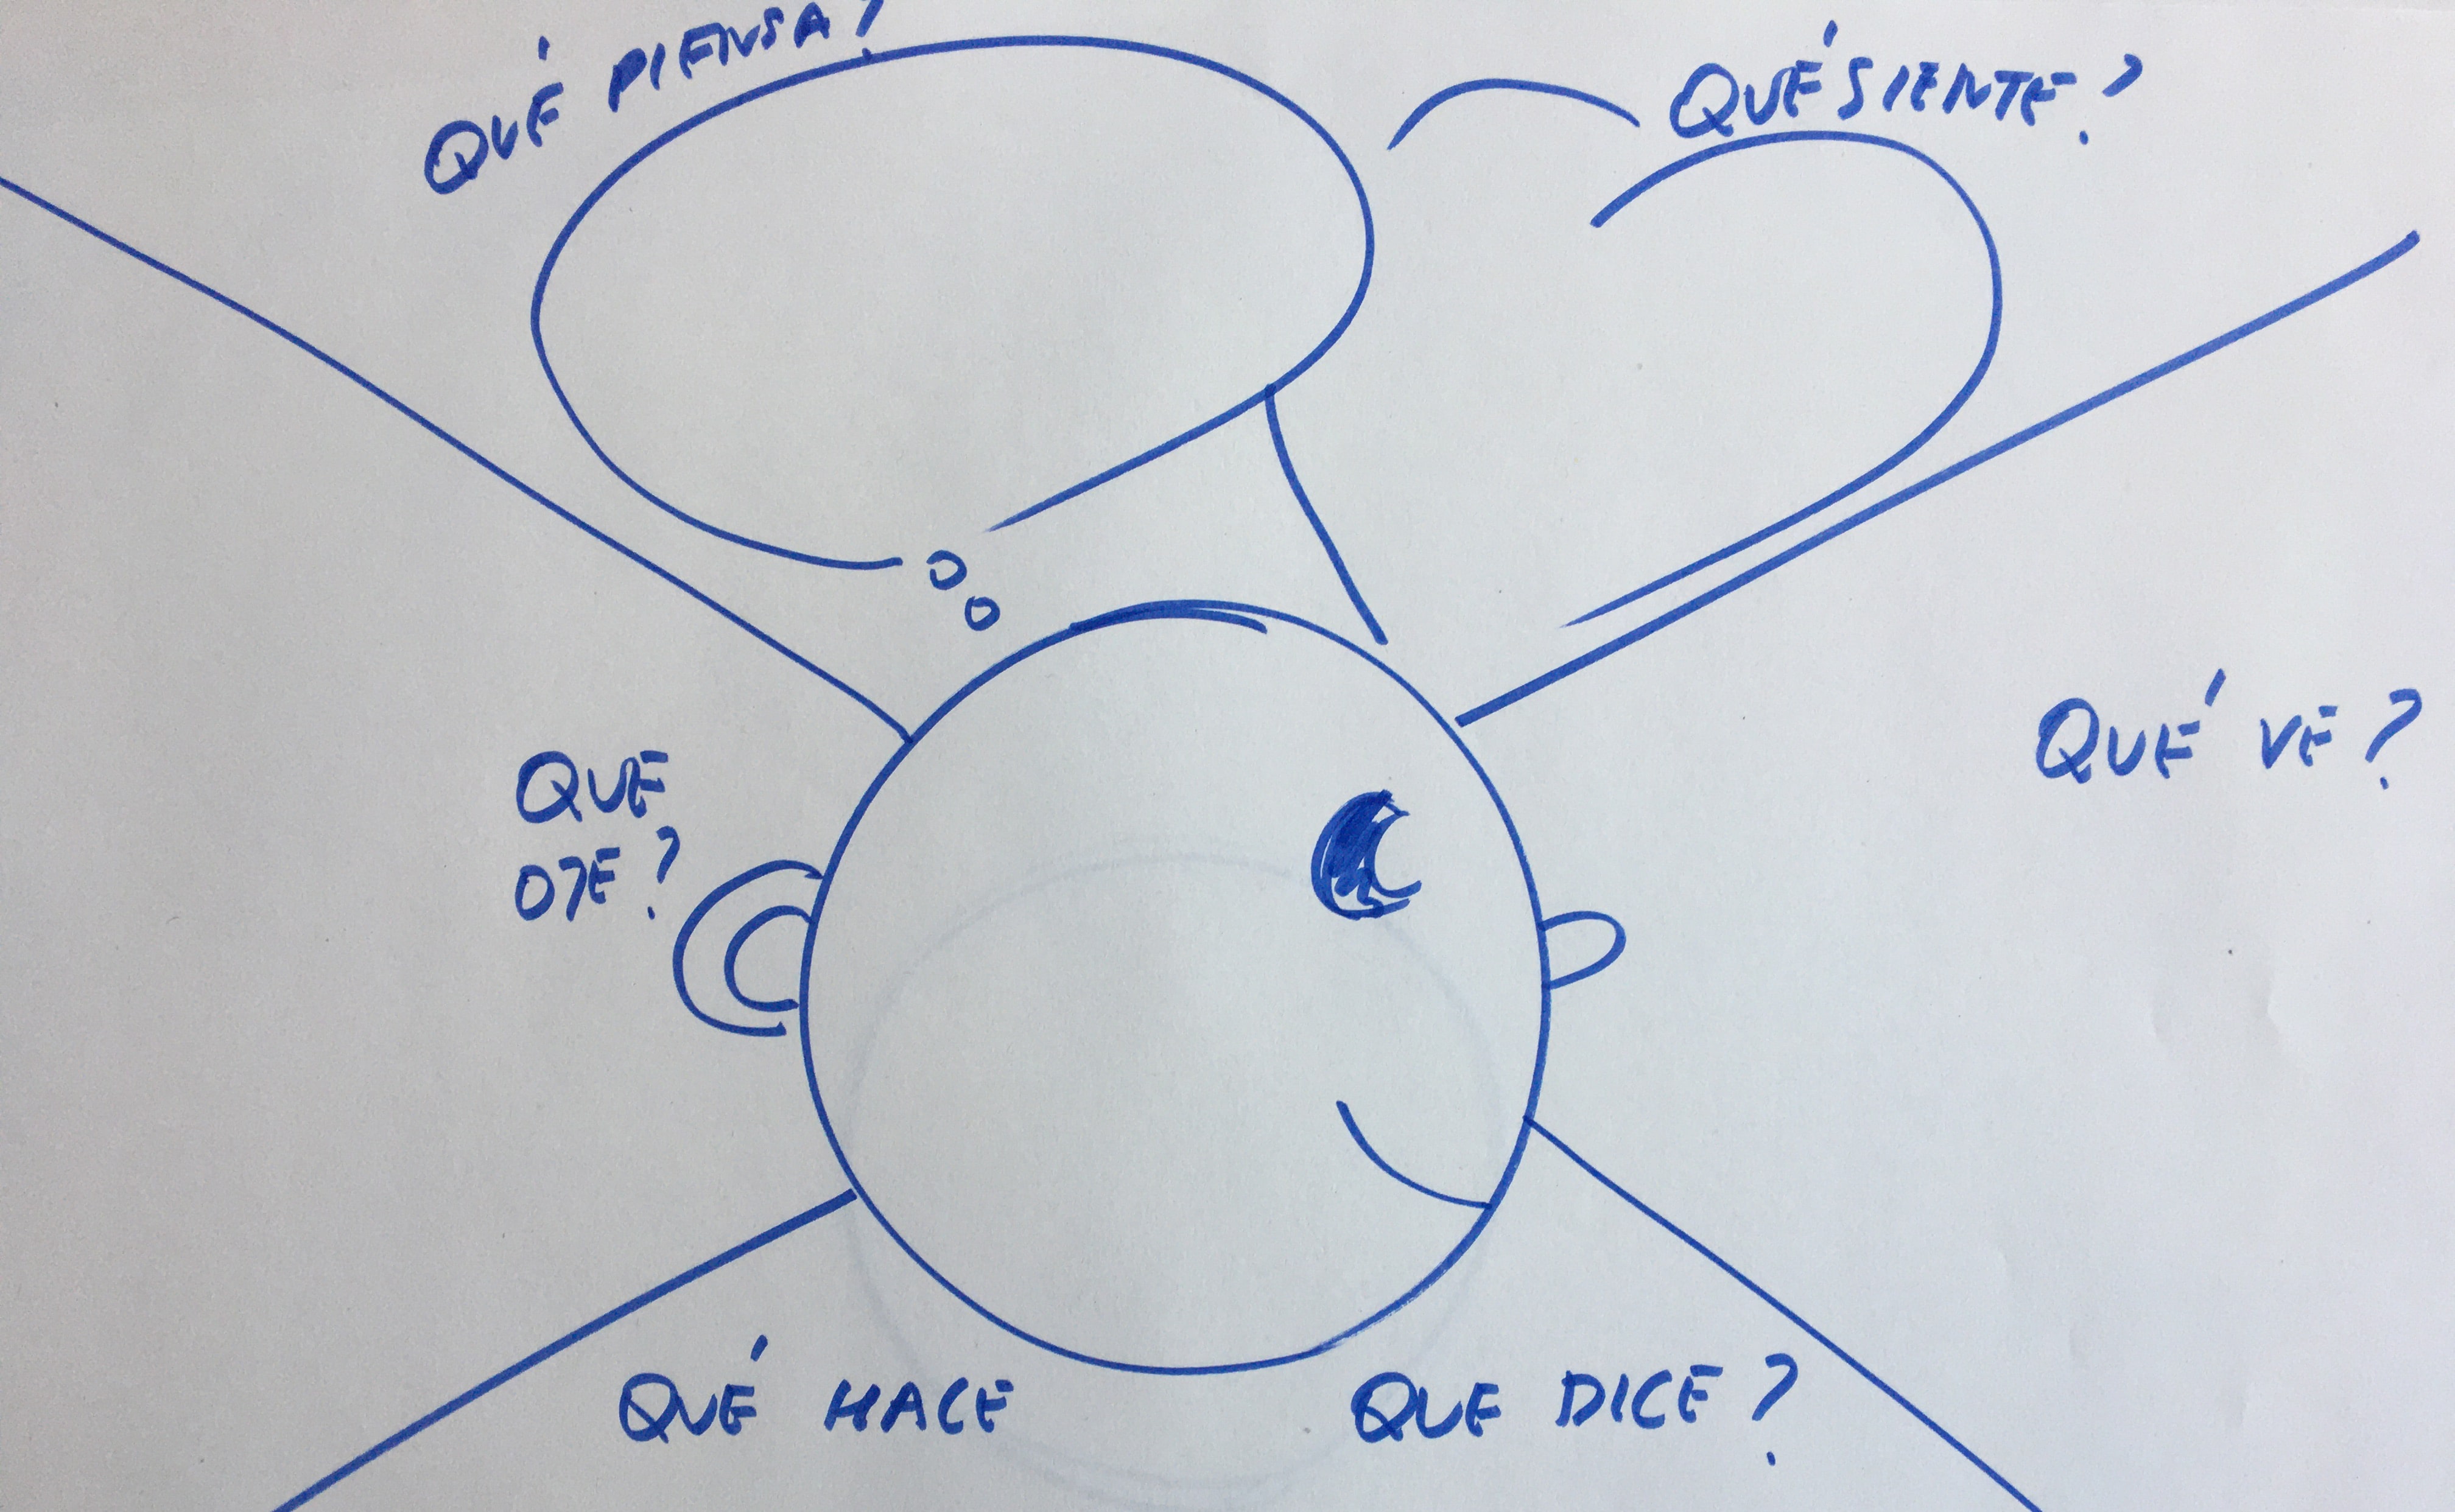 QUÉ PIENSA?
QUÉ SIENTE?
QUÉ VE?
QUE
OYE?
QUÉ HACE
QUE DICE?